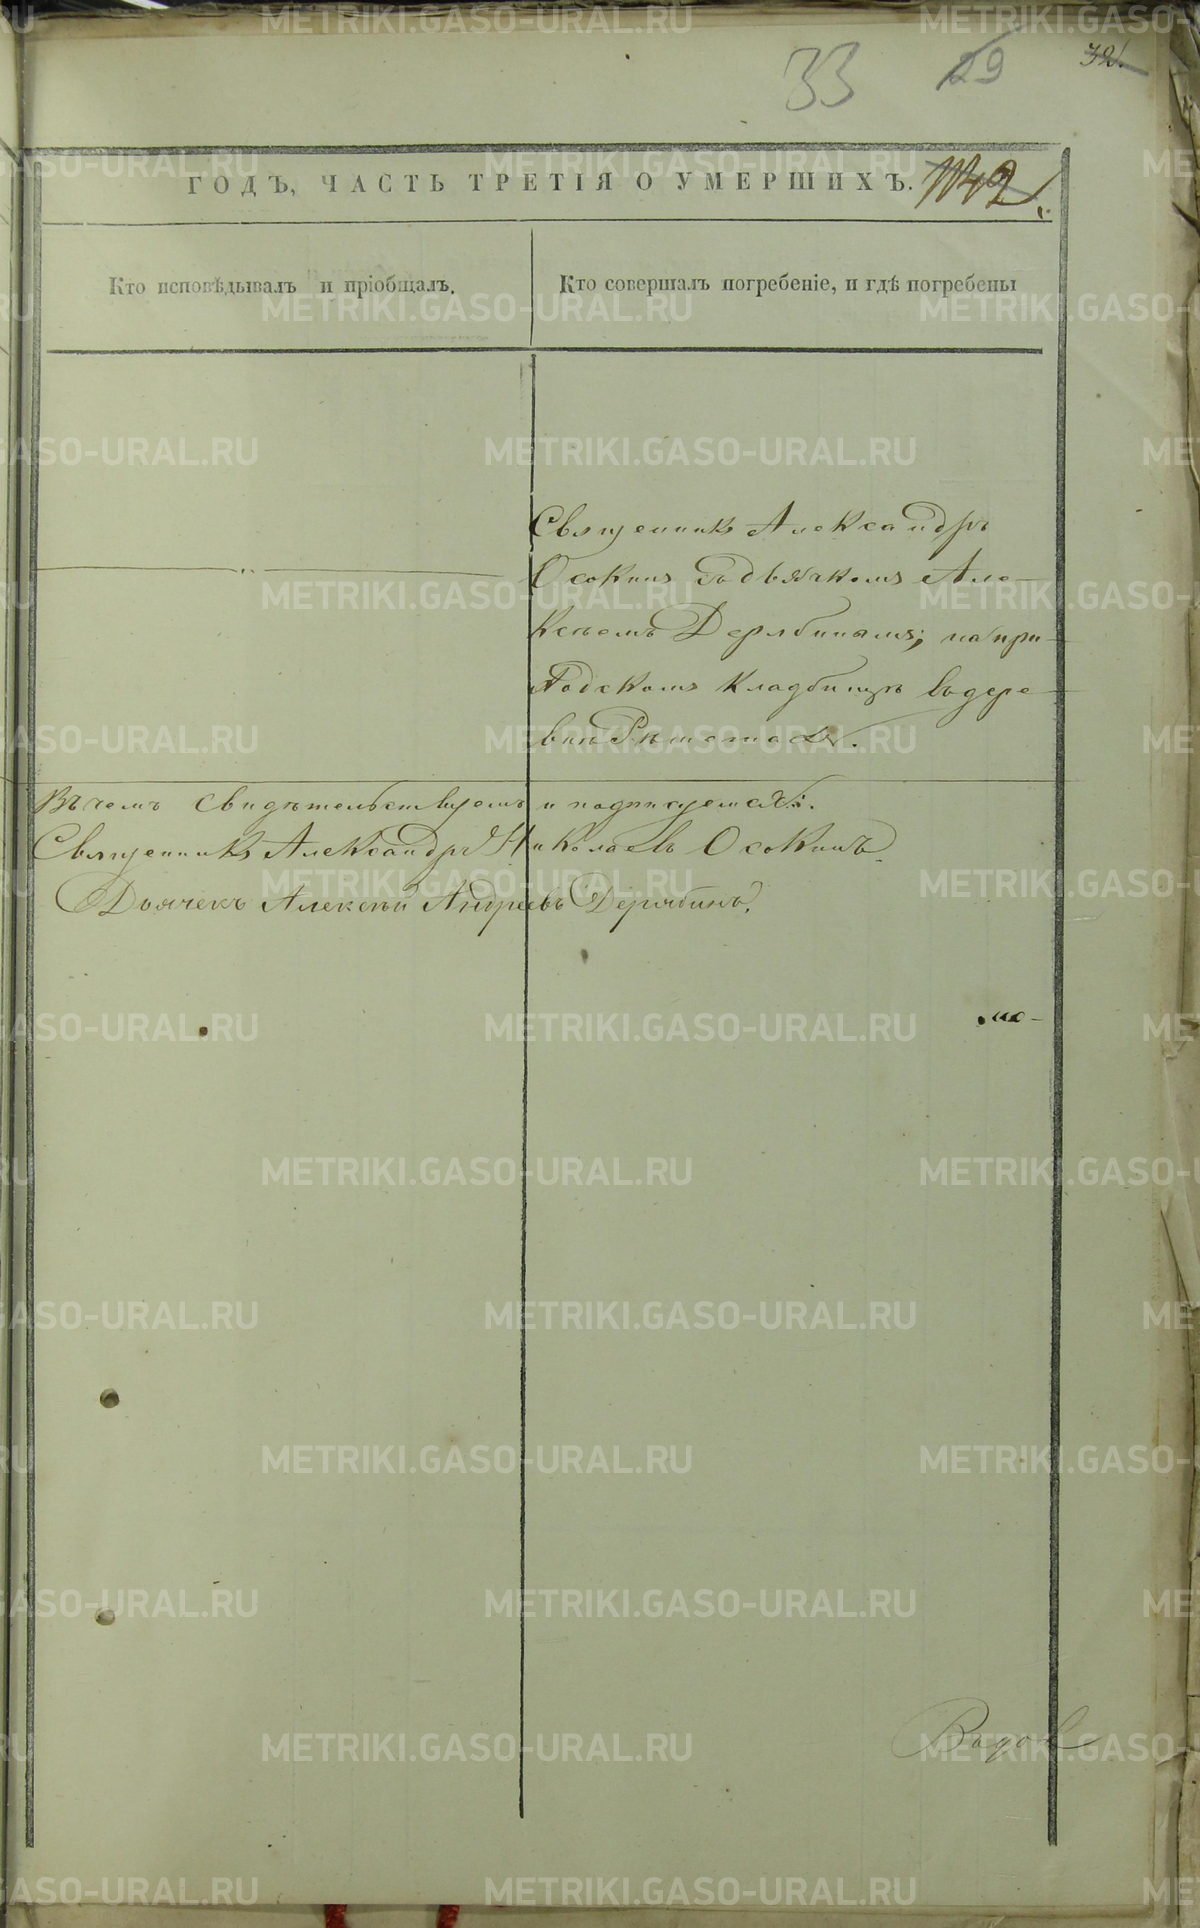 33 29 32.
ГОДЪ, ЧАСТЬ ТРЕТІЯ О УМЕРШИХЪ.
Кто исповѣдывалъ и пріобщалъ.
Кто совершалъ погребеніе, и гдѣ погребены
Священникъ Александръ
Осокинъ съ дьячкомъ Але-
ксѣемъ Дерябинымъ; на при-
ходскомъ кладбищѣ въ дере-
внѣ Рѣшетахъ.
Въ чемъ свидѣтельствуемъ и подписуемся:
Священникъ Александръ Николаевъ Осокинъ
Дьячекъ Алексѣй Андреевъ Дерябинъ.
METRIKI.GASO-URAL.RU